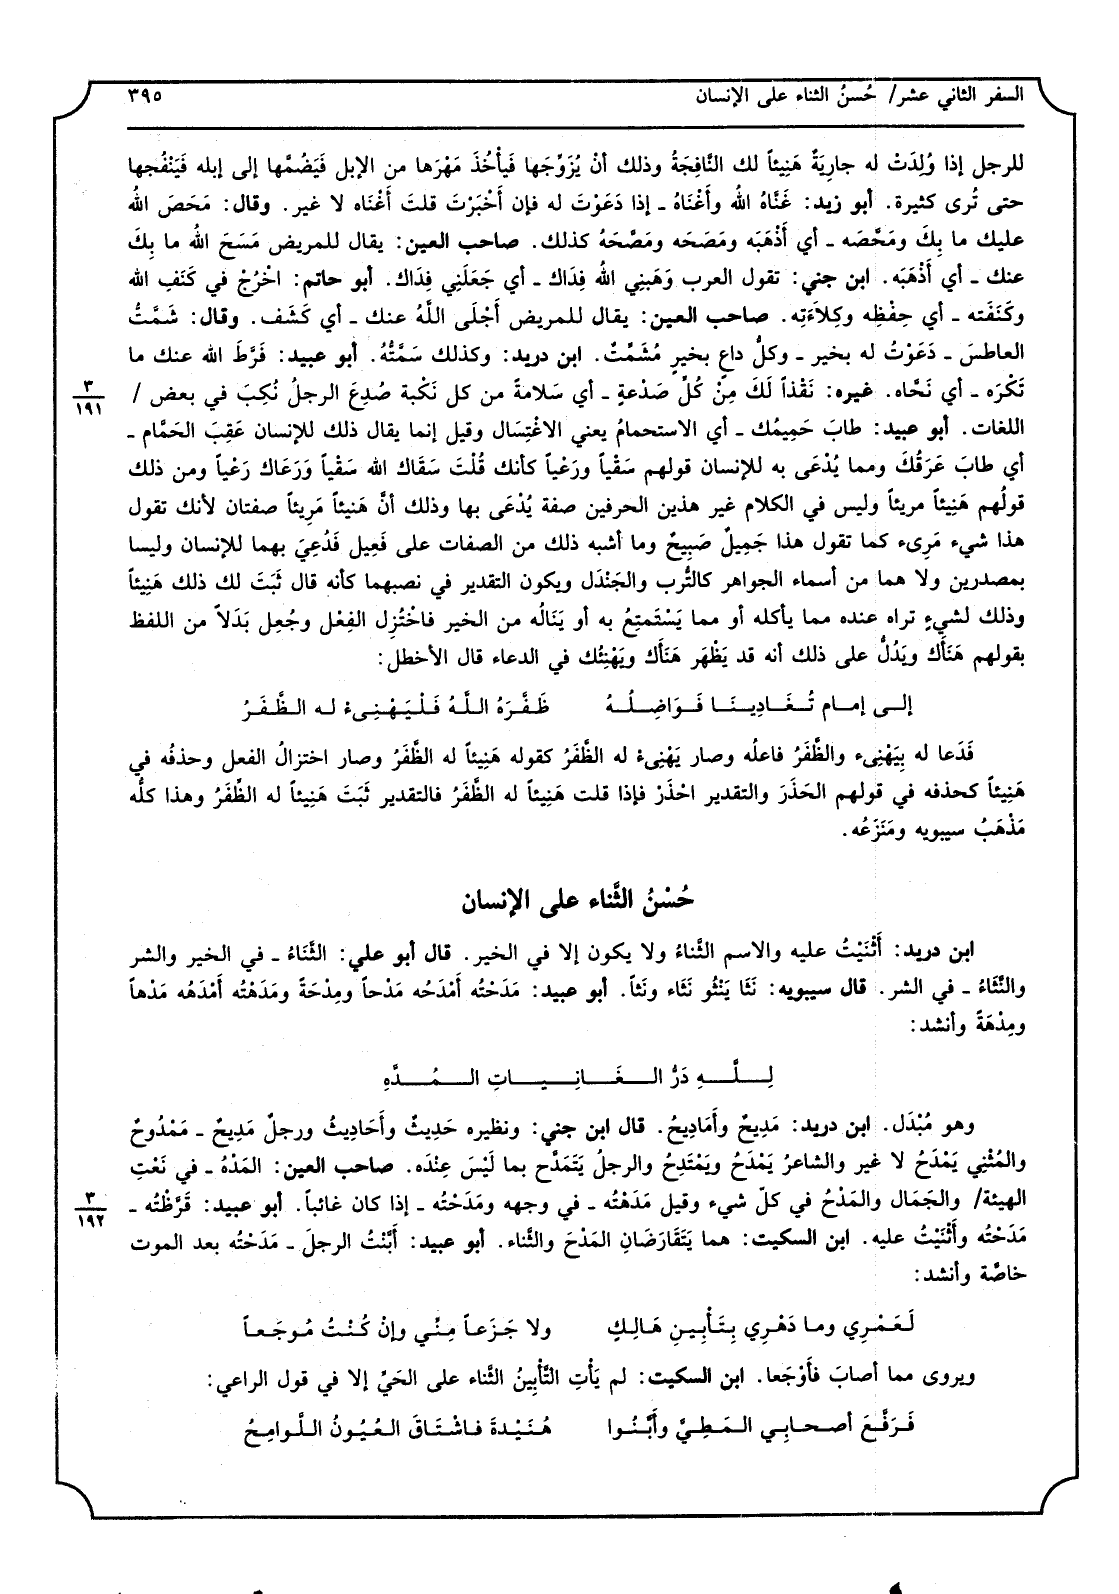 السفر الثاني عشر/ حُسنُ الثناء على الإنسان ٣٩٥
للرجل إذا وُلِدَتْ له جاريَةٌ هَنِيئاً لك النَّافِجَةُ وذلك أنْ يُزَوِّجَها فَيأْخُذَ مَهْرَها من الإبل فَيَضُمَّها إلى إبله فَيَنْفُجها
حتى تُرى كثيرة. أبو زيد: غَنَّاهُ اللهُ وأَغْنَاهُ ـ إذا دَعَوْت له فإن أَخْبَرْت قلتَ أَغْنَاه لا غير. وقال: مَحَصَ اللهُ
عليك ما بِكَ ومَحَّصَه ـ أي أَذْهَبَه ومَصَحَه ومَصَّحَهُ كذلك. صاحب العين: يقال للمريض مَسَحَ اللهُ ما بِكَ
عنك ـ أي أَذْهَبَه. ابن جني: تقول العرب وَهَبنِي اللهُ فِدَاك ـ أي جَعَلَنِي فِدَاك. أبو حاتم: اخْرُجْ في كَنَفِ الله
وكَنَفَته ـ أي حِفْظِه وكِلاَءَتِه. صاحب العين: يقال للمريض أَجْلَى اللَّهُ عنك ـ أي كَشَف. وقال: شَمَّتُّ
العاطسَ ـ دَعَوْتُ له بخير ـ وكلُّ داعٍ بخيرٍ مُشَمِّتٌ. ابن دريد: وكذلك سَمَّتُّهُ. أبو عبيد: فَرَّطَ الله عنك ما
تَكْرَه ـ أي نَحَّاه. غيره: نَقْذاً لَكَ مِنْ كُلِّ صَدْعةٍ ـ أي سَلامةً من كل نَكْبة صُدِعَ الرجلُ نُكِبَ في بعض /
٣
١٩١
اللغات. أبو عبيد: طابَ حَمِيمُك ـ أي الاستحمامُ يعني الاغْتِسَال وقيل إنما يقال ذلك للإنسان عَقِبَ الحَمَّام ـ
أي طابَ عَرَقُكَ ومما يُدْعَى به للإنسان قولهم سَقْياً ورَعْياً كأنك قُلْتَ سَقَاك الله سَقْياً وَرَعَاك رَعْياً ومن ذلك
قولُهم هَنِيئاً مريئاً وليس في الكلام غير هذين الحرفين صفة يُدْعَى بها وذلك أنَّ هَنيئاً مَرِيئاً صفتان لأنك تقول
هذا شيء مَرِىء كما تقول هذا جَمِيلٌ صَبِيحٌ وما أشبه ذلك من الصفات على فَعِيل فَدُعِيَ بهما للإنسان وليسا
بمصدرين ولا هما من أسماء الجواهر كالتُّرب والجَنْدَل ويكون التقدير في نصبهما كأنه قال ثَبَتَ لك ذلك هَنِيئاً
وذلك لشيءٍ تراه عنده مما يأكله أو مما يَسْتَمتِعُ به أو يَنَالُه من الخير فاخْتُزِل الفِعْل وجُعِل بَدَلاً من اللفظ
بقولهم هَنَأَك ويَدُلُّ على ذلك أنه قد يَظْهَر هَنَأَك ويَهْنِئُك في الدعاء قال الأخطل:
إلى إمام تُغَادِينَا فَوَاضِلُهُ ظَفَّرَهُ اللَّهُ فَلْيَهْنِىءْ له الظَّفَرُ
فَدَعا له بِيَهْنِىء والظَّفَرُ فاعلُه وصار يَهْنِىءْ له الظَّفَرُ كقوله هَنِيئاً له الظَّفَرُ وصار اختزالُ الفعل وحذفُه في
هَنِيئاً كحذفه في قولهم الحَذَرَ والتقدير احْذَرْ فإذا قلت هَنِيئاً له الظَّفَرُ فالتقدير ثَبَتَ هَنِيئاً له الظَّفَرُ وهذا كلُّه
مَذْهَبُ سيبويه ومَنَزَعُه.
حُسْنُ الثَّناء على الإنسان
ابن دريد: أَثْنَيْتُ عليه والاسم الثَّناءُ ولا يكون إلا في الخير. قال أبو علي: الثَّنَاءُ ـ في الخير والشر
والنَّثَاءُ ـ في الشر. قال سيبويه: نَثَا يَنْثُو نَثَاء ونَثاً. أبو عبيد: مَدَحْتُه أَمْدَحُه مَدْحاً ومِدْحَةً ومَدَهْتُه أَمْدَهُه مَدْهاً
ومِدْهَةً وأنشد:
لِلَّهِ دَرُّ الغَانِيَاتِ المُدَّهِ
وهو مُبْدَل. ابن دريد: مَدِيحٌ وأَمَادِيحُ. قال ابن جني: ونظيره حَدِيثٌ وأَحَادِيثُ ورجلٌ مَدِيحٌ ـ مَمْدُوحٌ
والمُثْنِي يَمْدَحُ لا غير والشاعرُ يَمْدَحُ ويَمْتَدِحُ والرجلُ يَتَمَدَّح بما لَيْسَ عِنْدَه. صاحب العين: المَدْهُ ـ في نَعْتِ
الهيئة/ والجَمَال والمَدْحُ في كلّ شيء وقيل مَدَهْتُه ـ في وجهه ومَدَحْتُه ـ إذا كان غائباً. أبو عبيد: قَرَّظْتُه ـ
٣
١٩٢
مَدَحْتُه وأَثْنَيْتُ عليه. ابن السكيت: هما يَتَقَارَضَانِ المَدْحَ والثَّناء. أبو عبيد: أَبَّنْتُ الرجلَ ـ مَدَحْتُه بعد الموت
خاصَّة وأنشد:
لَعَمْرِي وما دَهْرِي بِتَأْبِينِ هَالِكٍ ولا جَزَعاً مِنِّي وإنْ كُنْتُ مُوجَعاً
ويروى مما أصابَ فأَوْجَعا. ابن السكيت: لم يَأْتِ التَّأْبِينُ الثَّناء على الحَيِّ إلا في قول الراعي:
فَرَفَّعَ أصحابِي المَطِيَّ وأَبَّنُوا هُنَيْدةَ فاشْتاقَ العُيُونُ اللَّوامِحُ